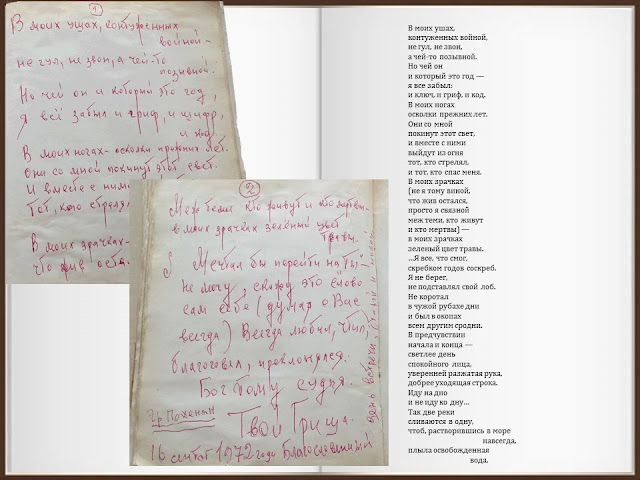 1
В моих ушах, контуженных
войной —
не гул, не звон, а чей-то
позывной.
Но чей он и который это год,
я всё забыл и гриф, и шифр,
и код.
В моих ногах — осколки прежних лет.
Они со мной покинут этот свет.
И вместе с ними
Тот, кто стрелял
В моих зрачках —
что жив оста
2
Меж теми кто живут и кто мертвы —
в моих зрачках зелёный цвет
травы.
Мечтал бы перейти на "Ты"
не могу, скажу это слово
сам себе (думая о Вас
всегда) Всегда любил, чтил,
благоговел, преклонялся.
Бог тому судья.
Гр Поженян
Твой Гриша.
16 сентяб 1972 года Благословенный
день встречи,
В моих ушах,
контуженных войной,
не гул, не звон,
а чей-то позывной.
Но чей он
и который это год —
я все забыл:
и ключ, и гриф, и код.
В моих ногах
осколки прежних лет.
Они со мной
покинут этот свет,
и вместе с ними
выйдут из огня
тот, кто стрелял,
и тот, кто спас меня.
В моих зрачках
(не я тому виной,
что жив остался,
просто я связной
меж теми, кто живут
и кто мертвы) —
в моих зрачках
зеленый цвет травы.
...Я все, что смог,
скребком годов соскреб.
Я не берег,
не подставлял свой лоб.
Не коротал
в чужой рубахе дни
и был в окопах
всем другим сродни.
В предчувствии
начала и конца —
светлее день
спокойного лица,
уверенней разжатая рука,
добрее уходящая строка.
Иду на дно
и не иду ко дну...
Так две реки
сливаются в одну,
чтоб, растворившись в море
навсегда,
плыла освобожденная
вода.